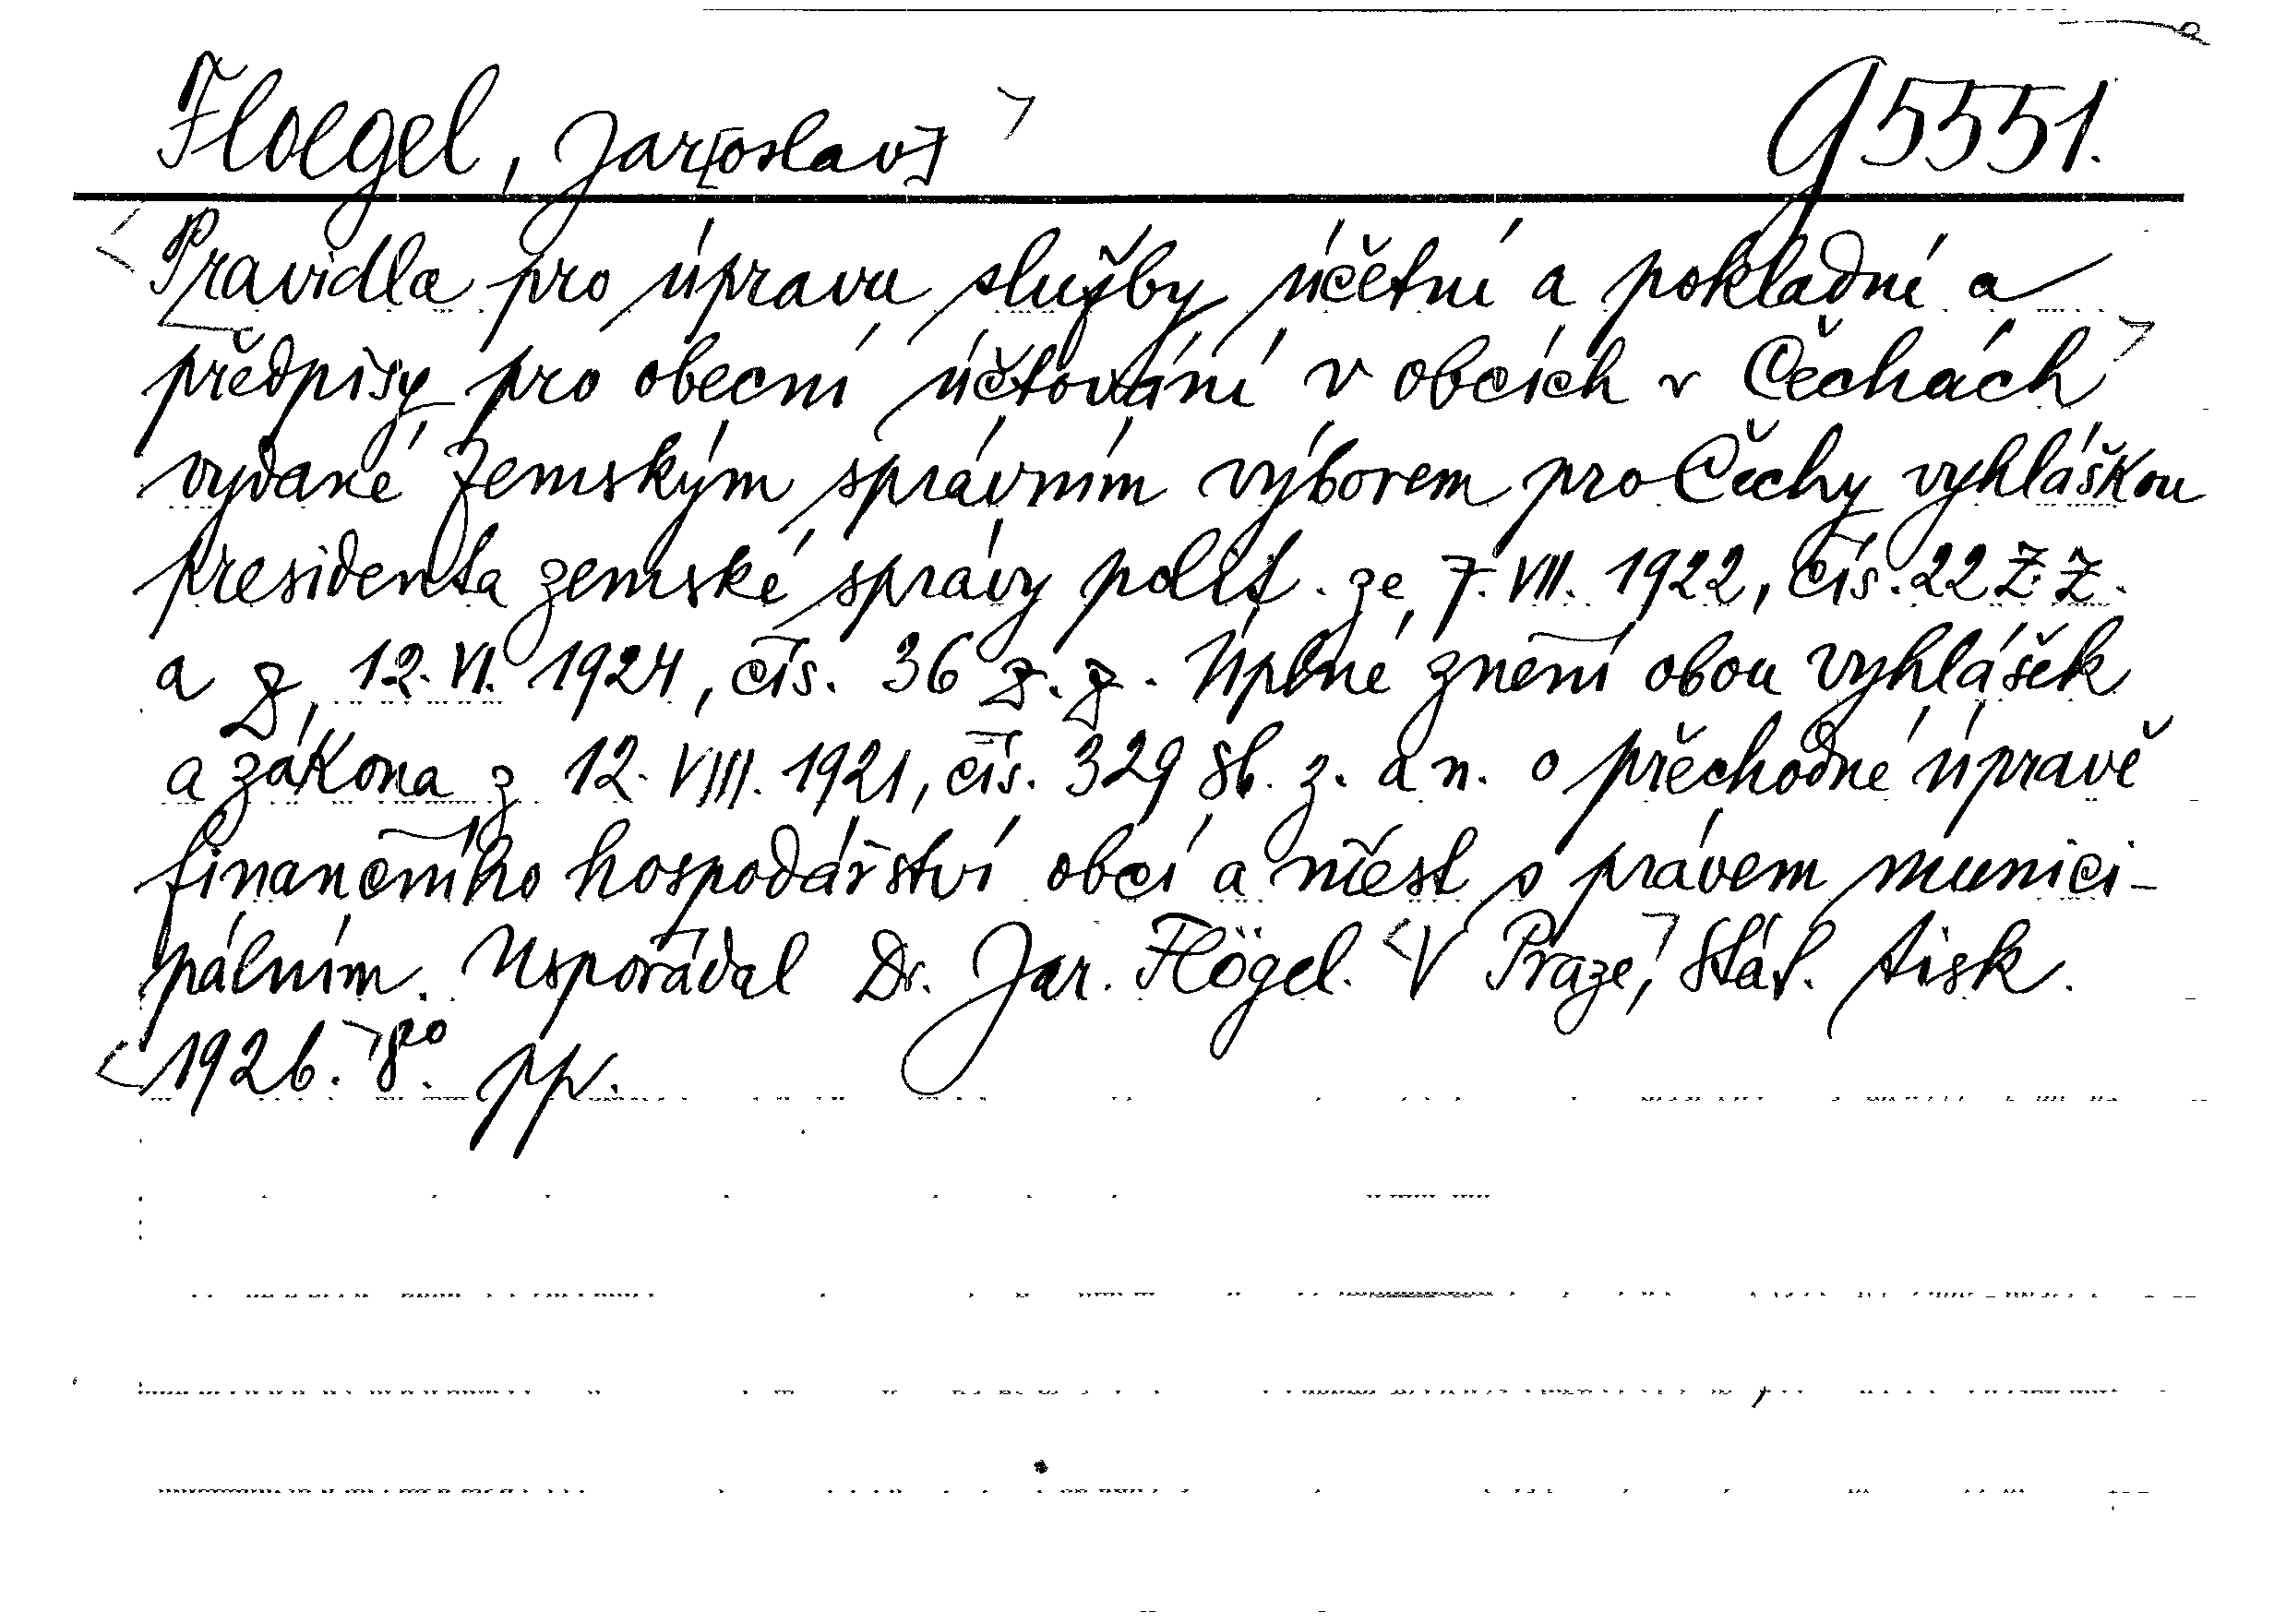 Floegel, Jar[oslav] g 5551.
Pravidla pro úpravu služby účetní a pokladní a
předpisy pro obecní účtování v obcích v Čechách
vydané zemským správním výborem pro Čechy vyhláškou
presidenta zemské správy polit. ze 7. VII. 1922, čís. 22 z. z.
a z 12. VI. 1924, čís. 36 z. z. Úplné znění obou vyhlášek
a zákona z 12. VIII. 1921, čís. 329 Sb. z. a n. o přechodné úpravě
finančního hospodářství obcí a měst s právem munici-
pálním. Uspořádal Dr. Jar. Flögel. V Praze, Stát. tisk.
1926. 8º. pp.